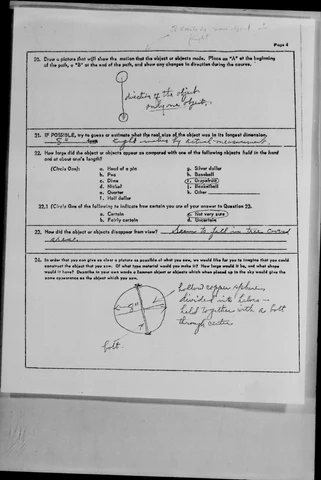 Page 4
20. Draw a picture that will show the motion that the object or objects made. Place an "A" at the beginning
of the path, a "B" at the end of the path, and show any changes in direction during the course.
direction of the object
only one object.
21. IF POSSIBLE, try to guess or estimate what the real size of the object was in its longest dimension.
8" feet Eight inches by actual measurement
22. How large did the object or objects appear as compared with one of the following objects held in the hand
and at about arm's length?
(Circle One): a. Head of a pin g. Silver dollar
b. Pea h. Baseball
c. Dime i. Grapefruit
d. Nickel j. Basketball
e. Quarter k. Other
f. Half dollar
22.1 (Circle One of the following to indicate how certain you are of your answer to Question 22.
a. Certain c. Not very sure
b. Fairly certain d. Uncertain
23. How did the object or objects disappear from view? Seems to fall in tree covered
area.
24. In order that you can give as clear a picture as possible of what you saw, we would like for you to imagine that you could
construct the object that you saw. Of what type material would you make it? How large would it be, and what shape
would it have? Describe in your own words a common object or objects which when placed up in the sky would give the
same appearance as the object which you saw.
hollow copper sphere
divided into halves
held together with a bolt
through center
8"
bolt.